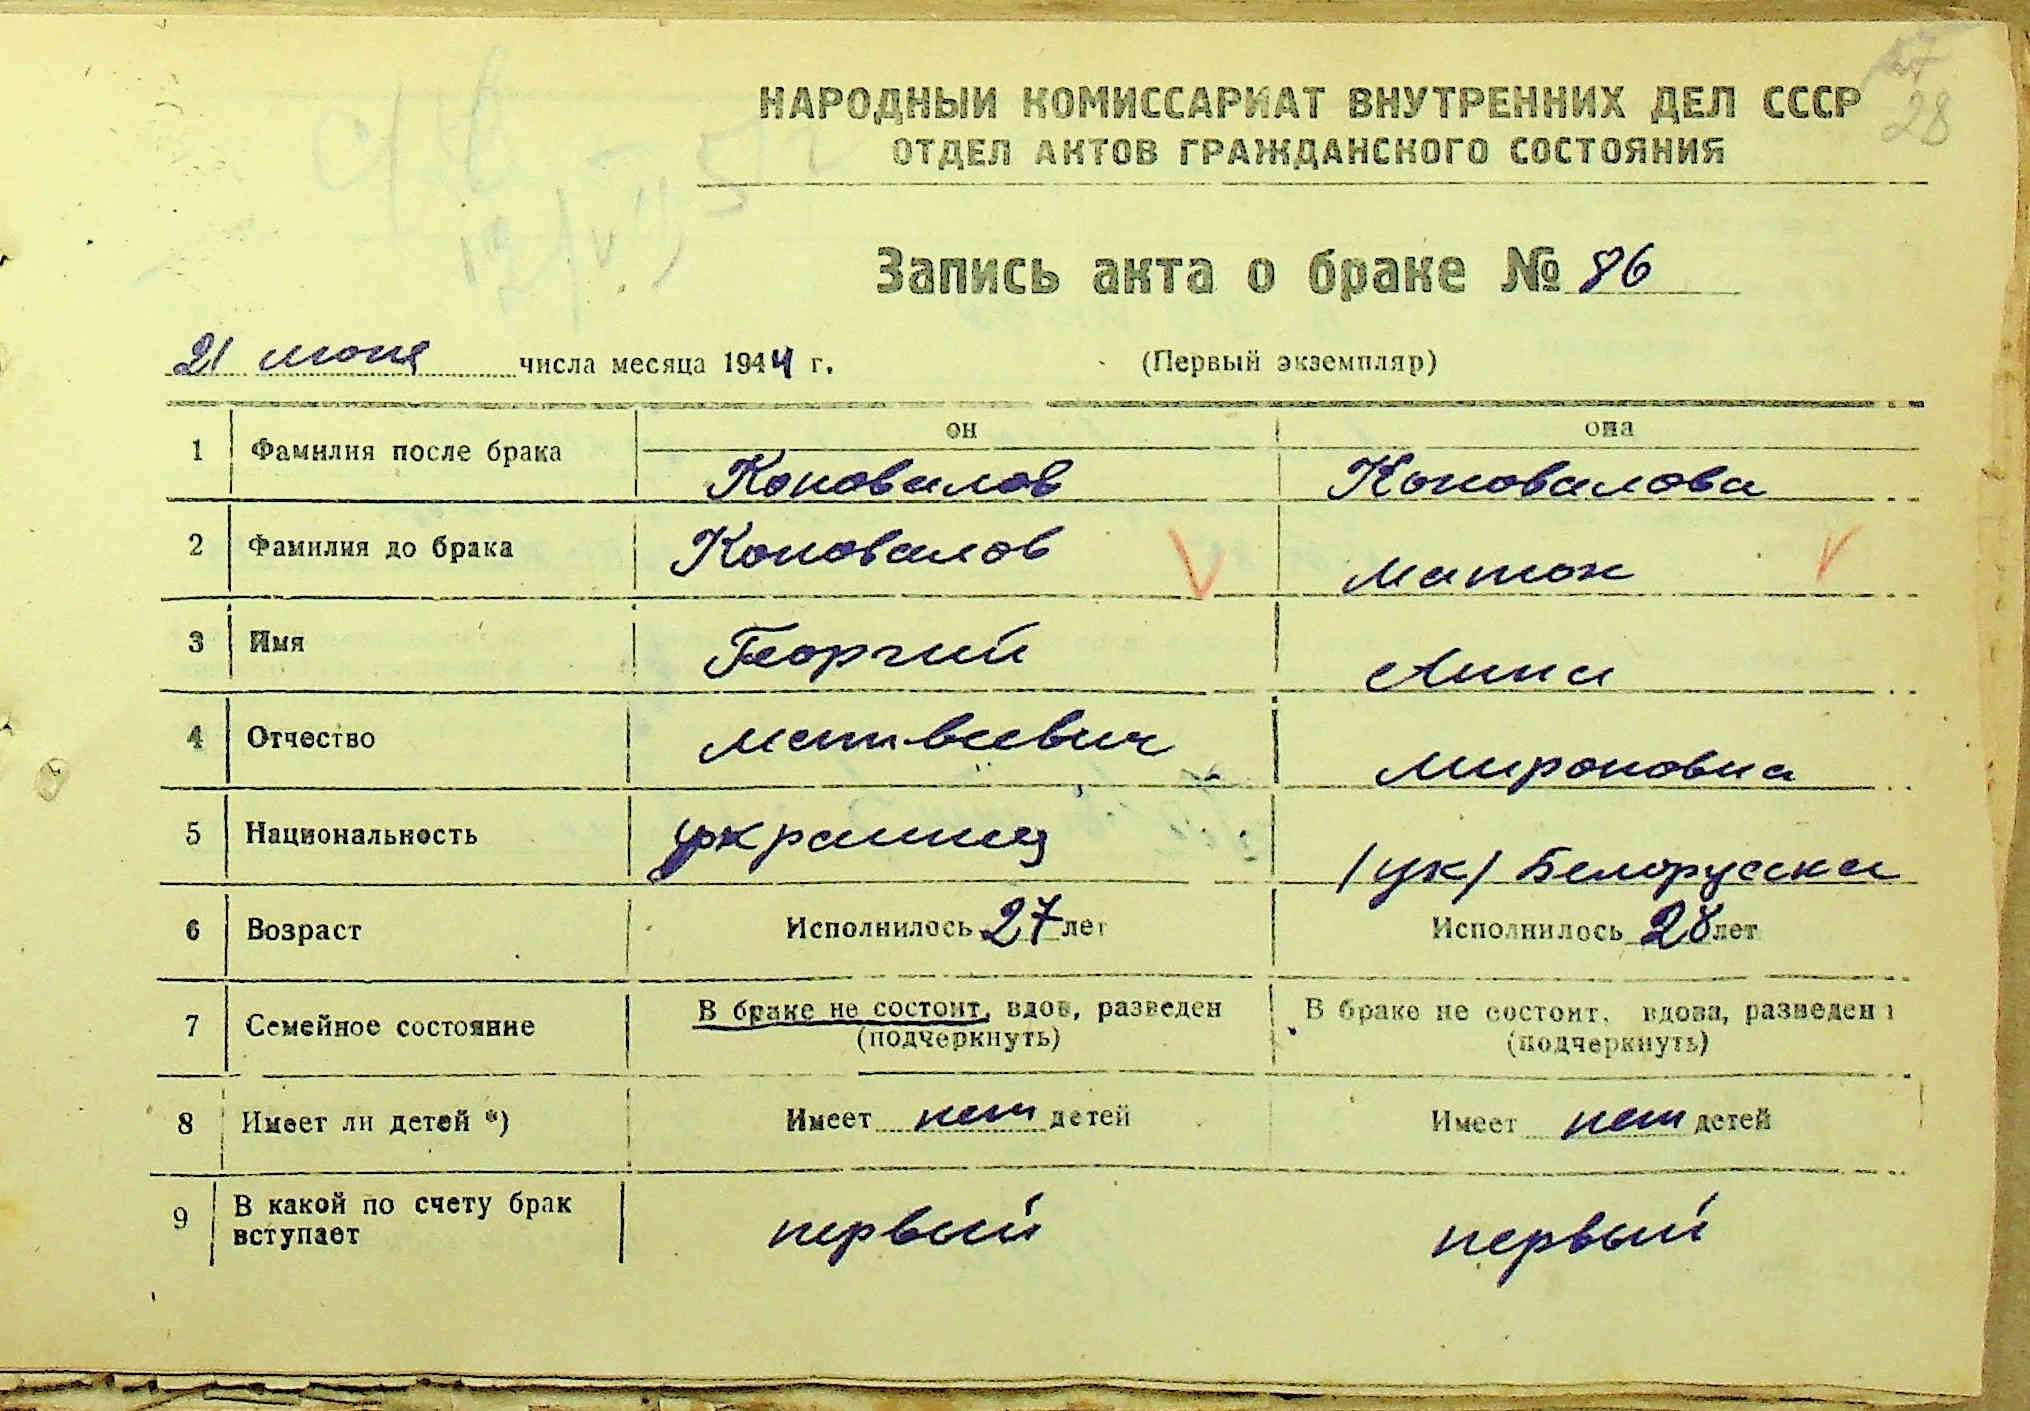 28
НАРОДНЫЙ КОМИССАРИАТ ВНУТРЕННИХ ДЕЛ СССР
ОТДЕЛ АКТОВ ГРАЖДАНСКОГО СОСТОЯНИЯ
Запись акта о браке № 86
21 июня числа месяца 1944 г. (Первый экземпляр)
он она
1 Фамилия после брака Коновалов Коновалова
2 Фамилия до брака Коновалов Матюк
3 Имя Георгий Анна
4 Отчество Матвеевич Мироновна
5 Национальность украинец /ук/ Белорусска
6 Возраст Исполнилось 27 лет Исполнилось 28 лет
7 Семейное состояние В браке не состоит, вдов, разведен В браке не состоит, вдова, разведена
(подчеркнуть) (подчеркнуть)
8 Имеет ли детей *) Имеет нет детей Имеет нет детей
9 В какой по счету брак
вступает первый первый